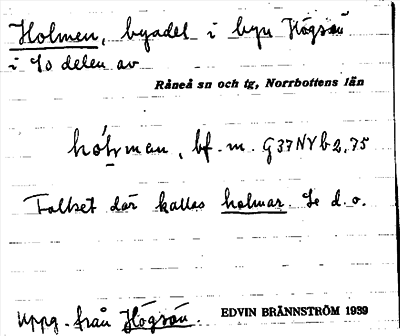 Holmen, byadel i byn Högsön
i So delen av
Råneå sn och tg, Norrbottens län
hólman, bf. m. G37NVb2.75
Folket där kallas holmar. Se d.o.
Uppg. från Högsön. EDVIN BRÄNNSTRÖM 1939